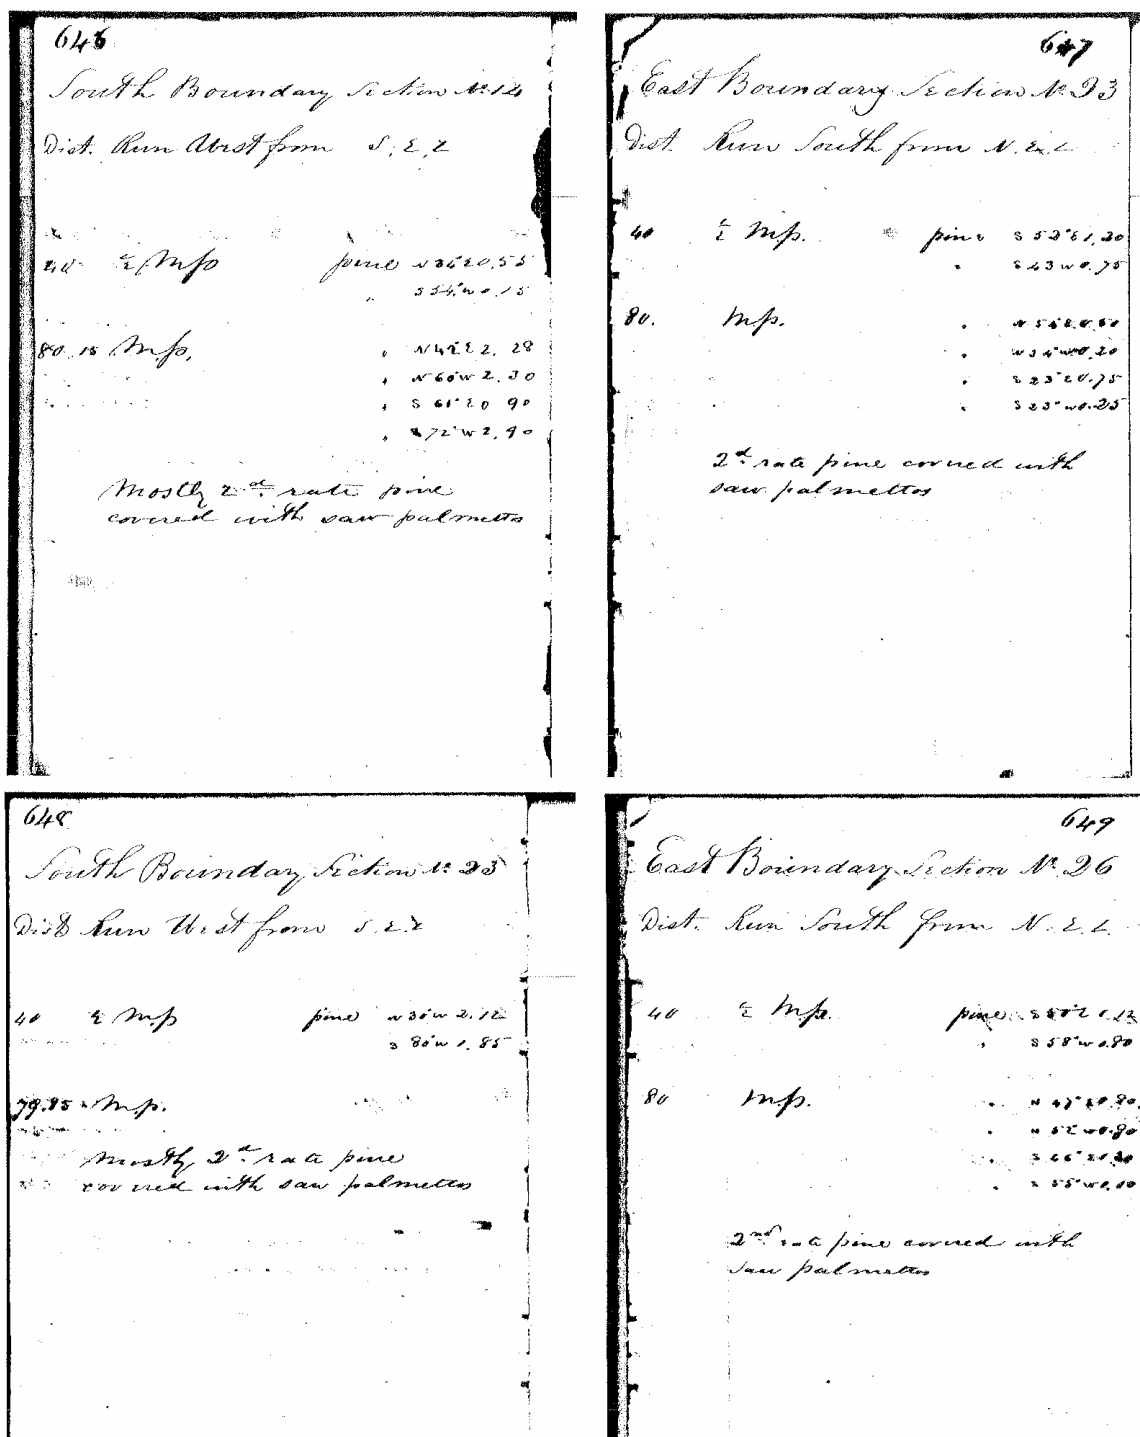 646
South Boundary Section No 14
Dist. Run West from S. E. C
40 ½ Mp pine N 34 E 0.55
" S 54 W 0.15
80.15 Mp. " N 42 E 2.28
" N 60 W 2.30
" S 61 E 0 90
" S 72 W 2.90
Mostly 2nd rate pine
covered with saw palmetto
647
East Boundary Section No 23
Dist. Run South from N. E. C
40 ½ Mp. pine S 53 E 1.20
" S 43 W 0.75
80. Mp.
" S 23 E 0.75
" S 23 W 0.25
2d rate pine covered with
saw palmettos
648
South Boundary Section No 23
Dist Run West from S. E. C
40 ½ Mp pine N 30 W 2.12
S 80 W 1.85
79.85 Mp.
Mostly 2d rate pine
covered with saw palmettos
649
East Boundary Section No 26
Dist. Run South from N. E. C.
40 ½ Mp. pine
" S 58 W 0.80
80 Mp.
2nd rate pine covered with
saw palmettos